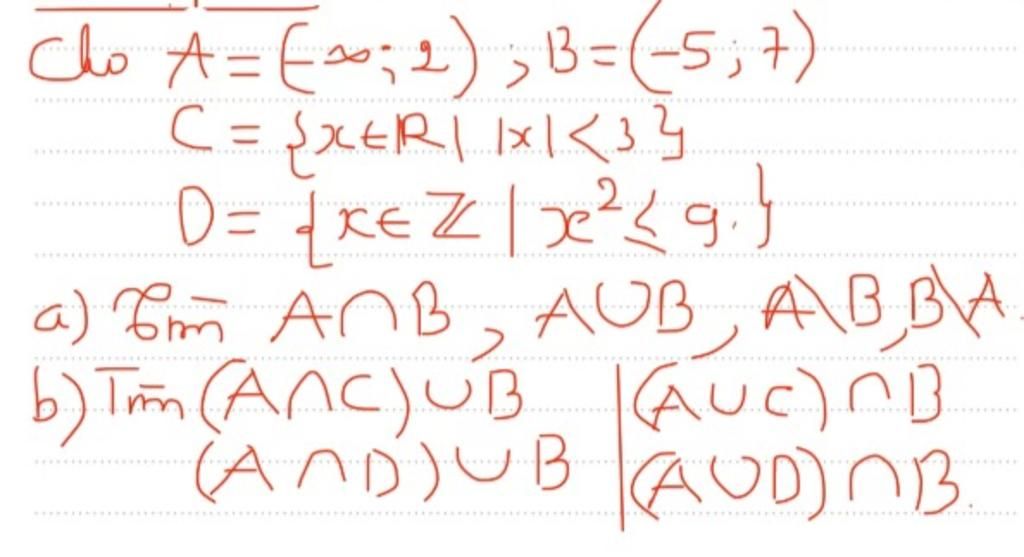 Cho A = (-∞; 2) ; B = (-5; 7)
C = {x ∈ R | |x| < 3}
D = {x ∈ ℤ | x² ≤ 9.}
a) Tìm A ∩ B, A ∪ B, A\B, B\A.
b) Tìm (A ∩ C) ∪ B | (A ∪ C) ∩ B
(A ∩ D) ∪ B | (A ∪ D) ∩ B.